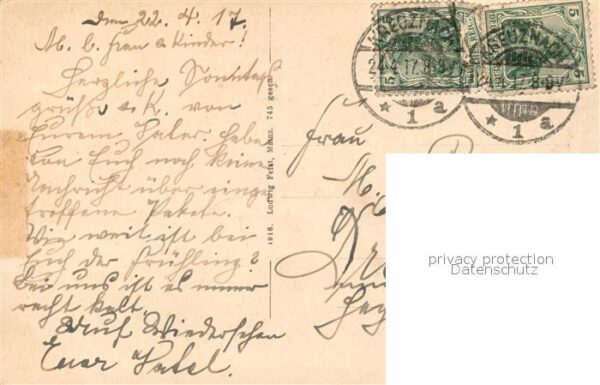 den 22.4.17.
M. l. Frau & Kinder!
Herzliche Sonntags
grüße a. K. von
Eurem Vater. Habe
von Euch noch keine
Nachricht über einge
troffene Pakete.
Wie weit ist bei
Euch der Frühling?
Bei uns ist es immer
recht kalt.
Auf Wiedersehen
Euer Vater.
1916. Ludwig Feist, Mainz. 745 gesch.
KREUZNACH
24.4.17.8-9V
* 1 a
KREUZNACH
24.4.17.8-9V
* 1 a
5
5
5
Frau
M.
privacy protection
Datenschutz